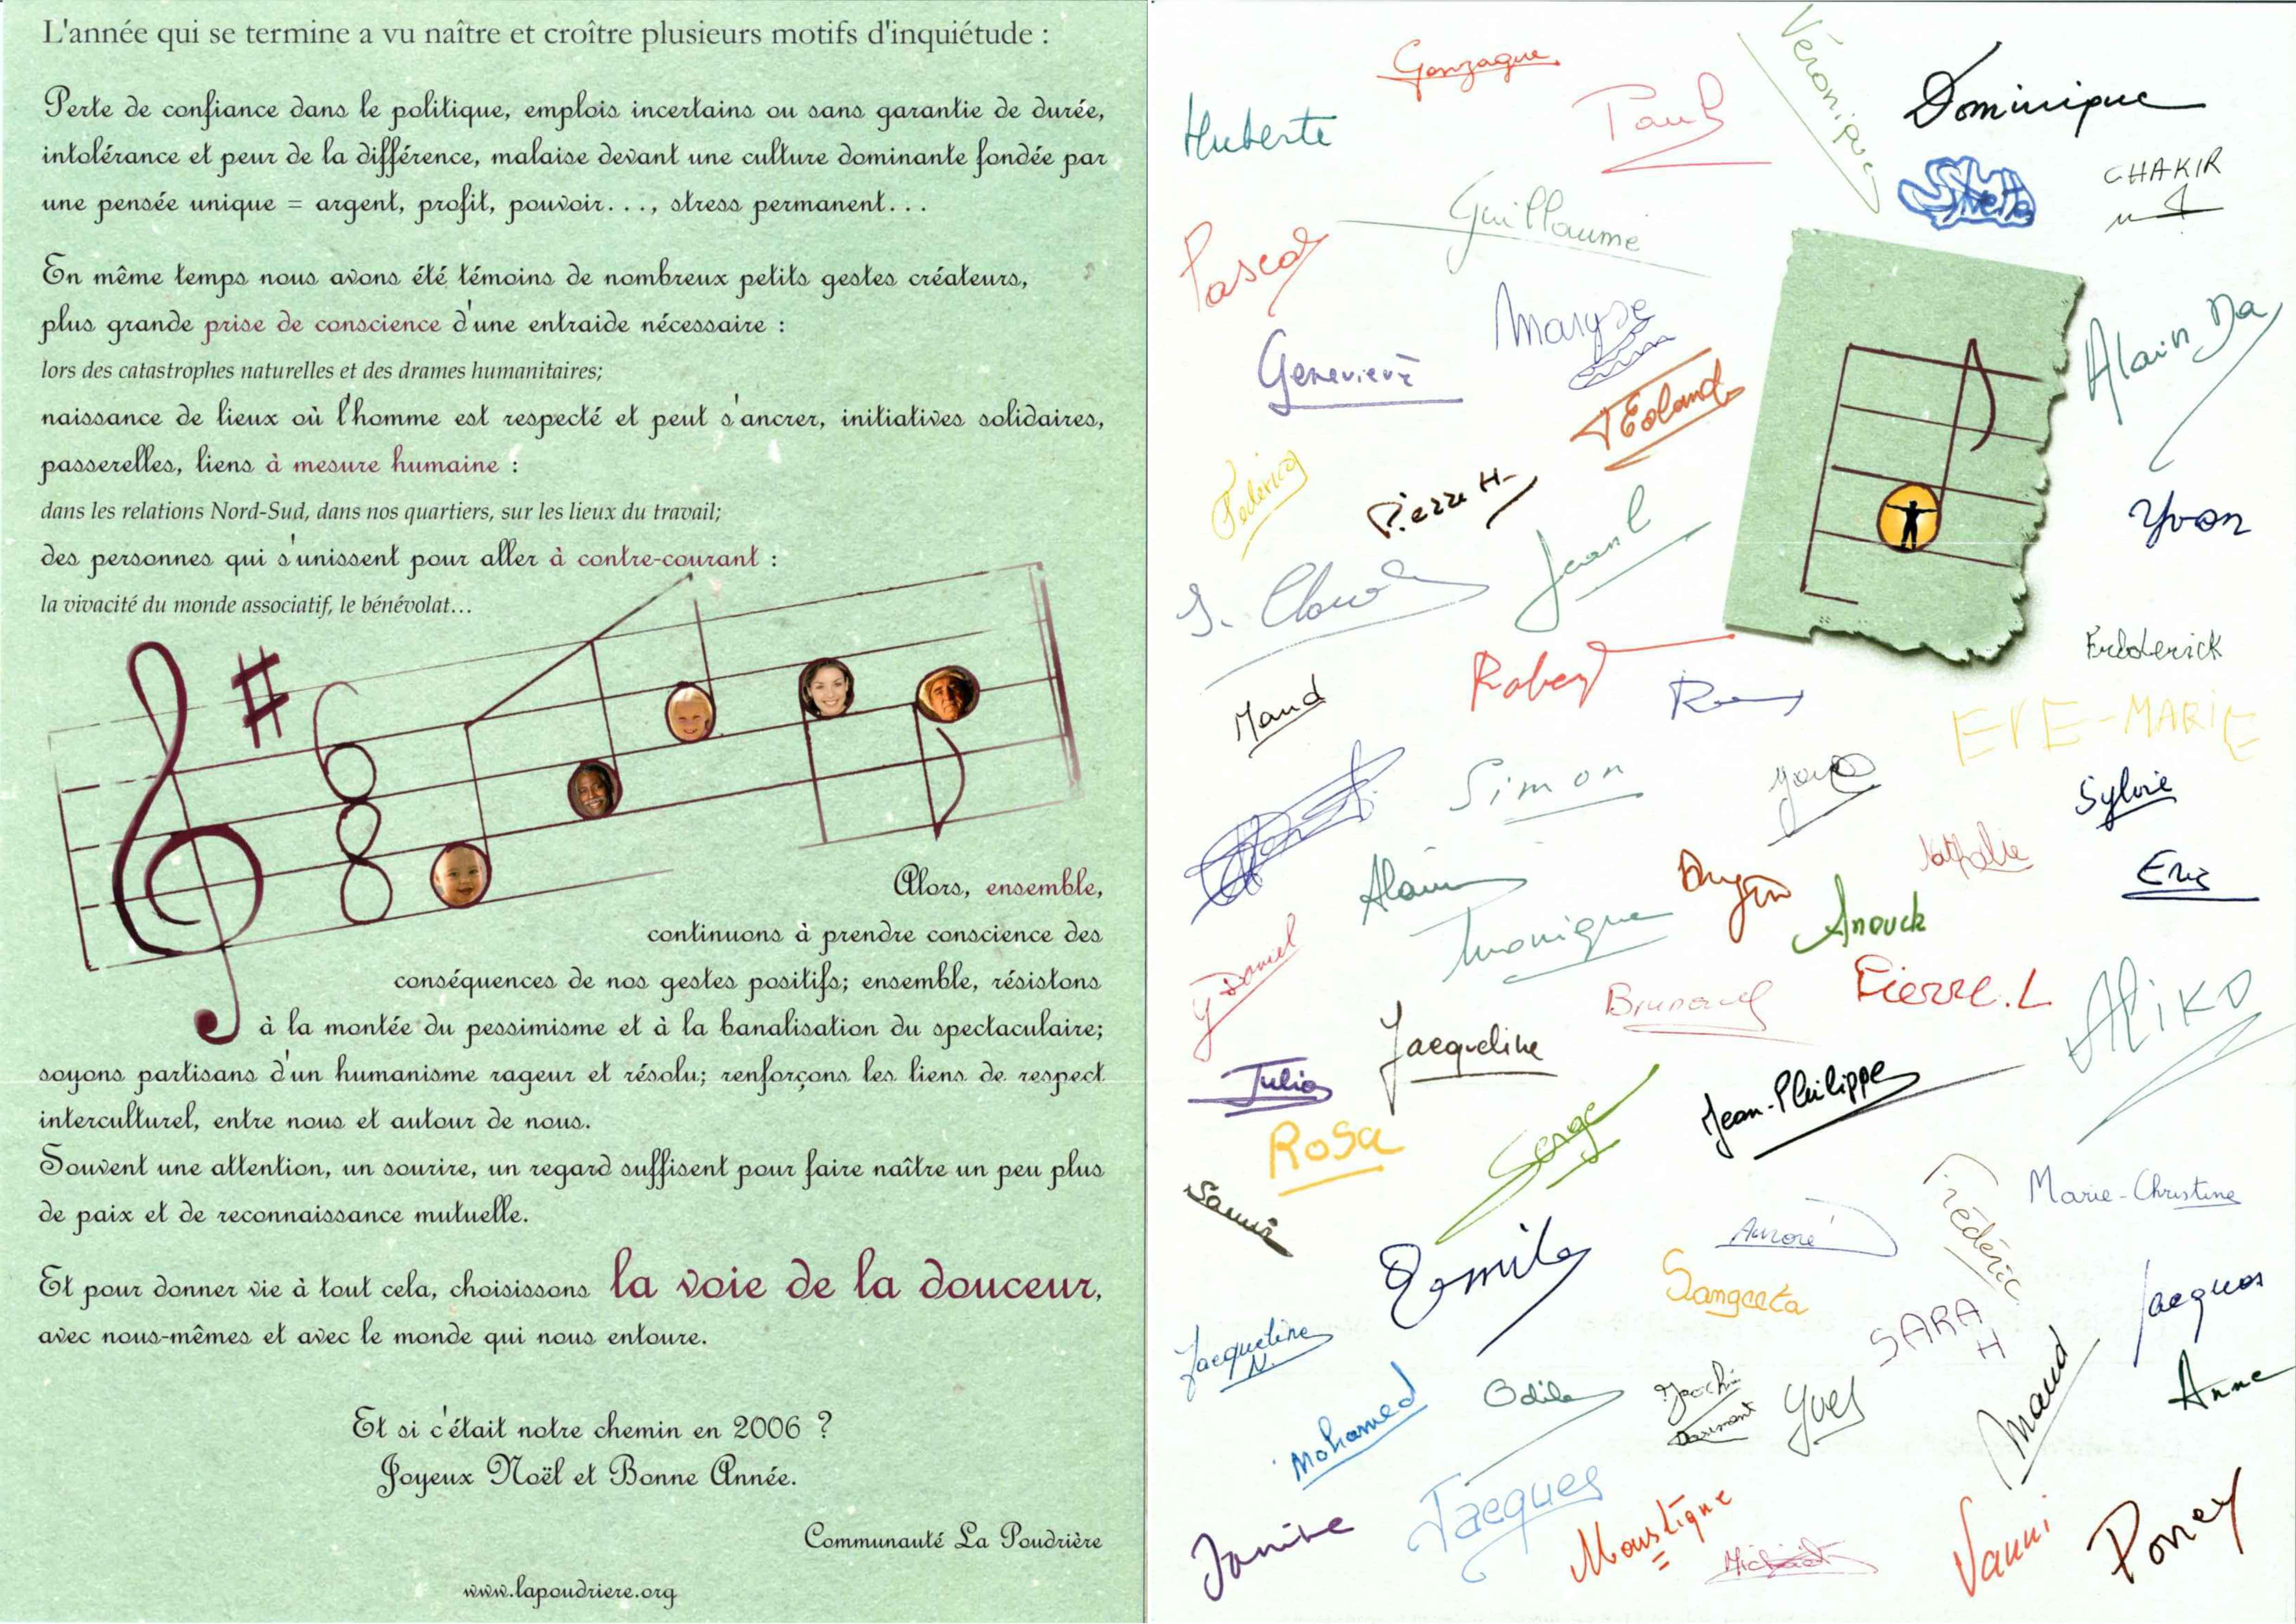 L'année qui se termine a vu naître et croître plusieurs motifs d'inquiétude :
Perte de confiance dans le politique, emplois incertains ou sans garantie de durée,
intolérance et peur de la différence, malaise devant une culture dominante fondée par
une pensée unique = argent, profit, pouvoir. . ., stress permanent. . .
En même temps nous avons été témoins de nombreux petits gestes créateurs,
plus grande prise de conscience d'une entraide nécessaire :
lors des catastrophes naturelles et des drames humanitaires;
naissance de lieux où l'homme est respecté et peut s'ancrer, initiatives solidaires,
passerelles, liens à mesure humaine :
dans les relations Nord-Sud, dans nos quartiers, sur les lieux du travail;
des personnes qui s'unissent pour aller à contre-courant :
la vivacité du monde associatif, le bénévolat...
Alors, ensemble,
continuons à prendre conscience des
conséquences de nos gestes positifs; ensemble, résistons
à la montée du pessimisme et à la banalisation du spectaculaire;
soyons partisans d'un humanisme rageur et résolu; renforçons les liens de respect
interculturel, entre nous et autour de nous.
Souvent une attention, un sourire, un regard suffisent pour faire naître un peu plus
de paix et de reconnaissance mutuelle.
Et pour donner vie à tout cela, choisissons la voie de la douceur,
avec nous-mêmes et avec le monde qui nous entoure.
Et si c'était notre chemin en 2006 ?
Joyeux Noël et Bonne Année.
Communauté La Poudrière
www.lapoudriere.org
Gonzague
Huberte
Paul
Véronique
Dominique
CHAKIR
Pascal
Guillaume
Maryse
Alain Da
Geneviev
Federico
Pierre H.
Jean L
Yvon
J. Claude
Frédérick
Maud
Robert
EVE-MARIE
Simon
Sylvie
Nathalie
Eric
Alain
Monique
Anouck
Y Daniel
Pierre.L
ALiKO
Jacqueline
Julia
Jean-Philippe
Rosa
Serge
Marie-Christine
Frédéric
Aurore
Emile
Sangeeta
Jacques
SARA H
Jacqueline N.
Anne
Mohamed
Odile
Yves
Maud
Jacques
Janine
Moustique
Michael
Vanni
Poney